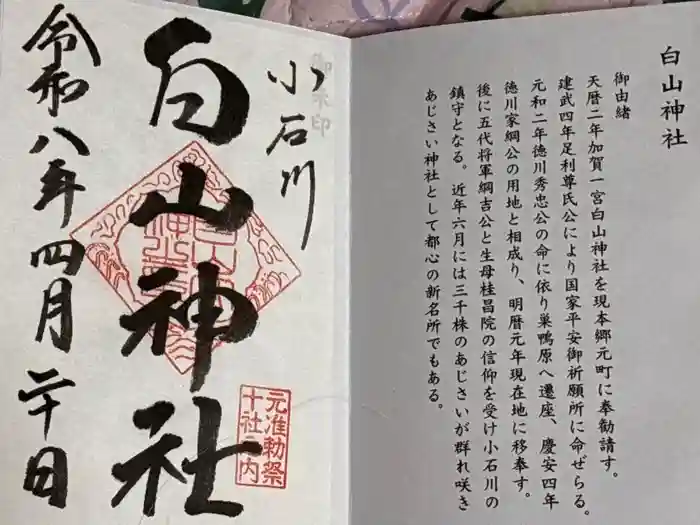 白山神社
御由緒
天暦二年加賀一宮白山神社を現本郷元町に奉勧請す。
建武四年足利尊氏公により国家平安御祈願所に命ぜらる。
元和二年徳川秀忠公の命に依り巣鴨原へ遷座、慶安四年
徳川家綱公の用地と相成り、明暦元年現在地に移奉す。
後に五代将軍綱吉公と生母桂昌院の信仰を受け小石川の
鎮守となる。近年六月には三千株のあじさいが群れ咲き
あじさい神社として都心の新名所でもある。
小石川
白山神社
元准勅祭
十社之内
令和八年四月二十日